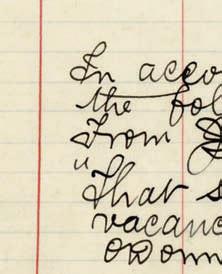 In acco
the fol
From
"That s
vacanc
O'Donn